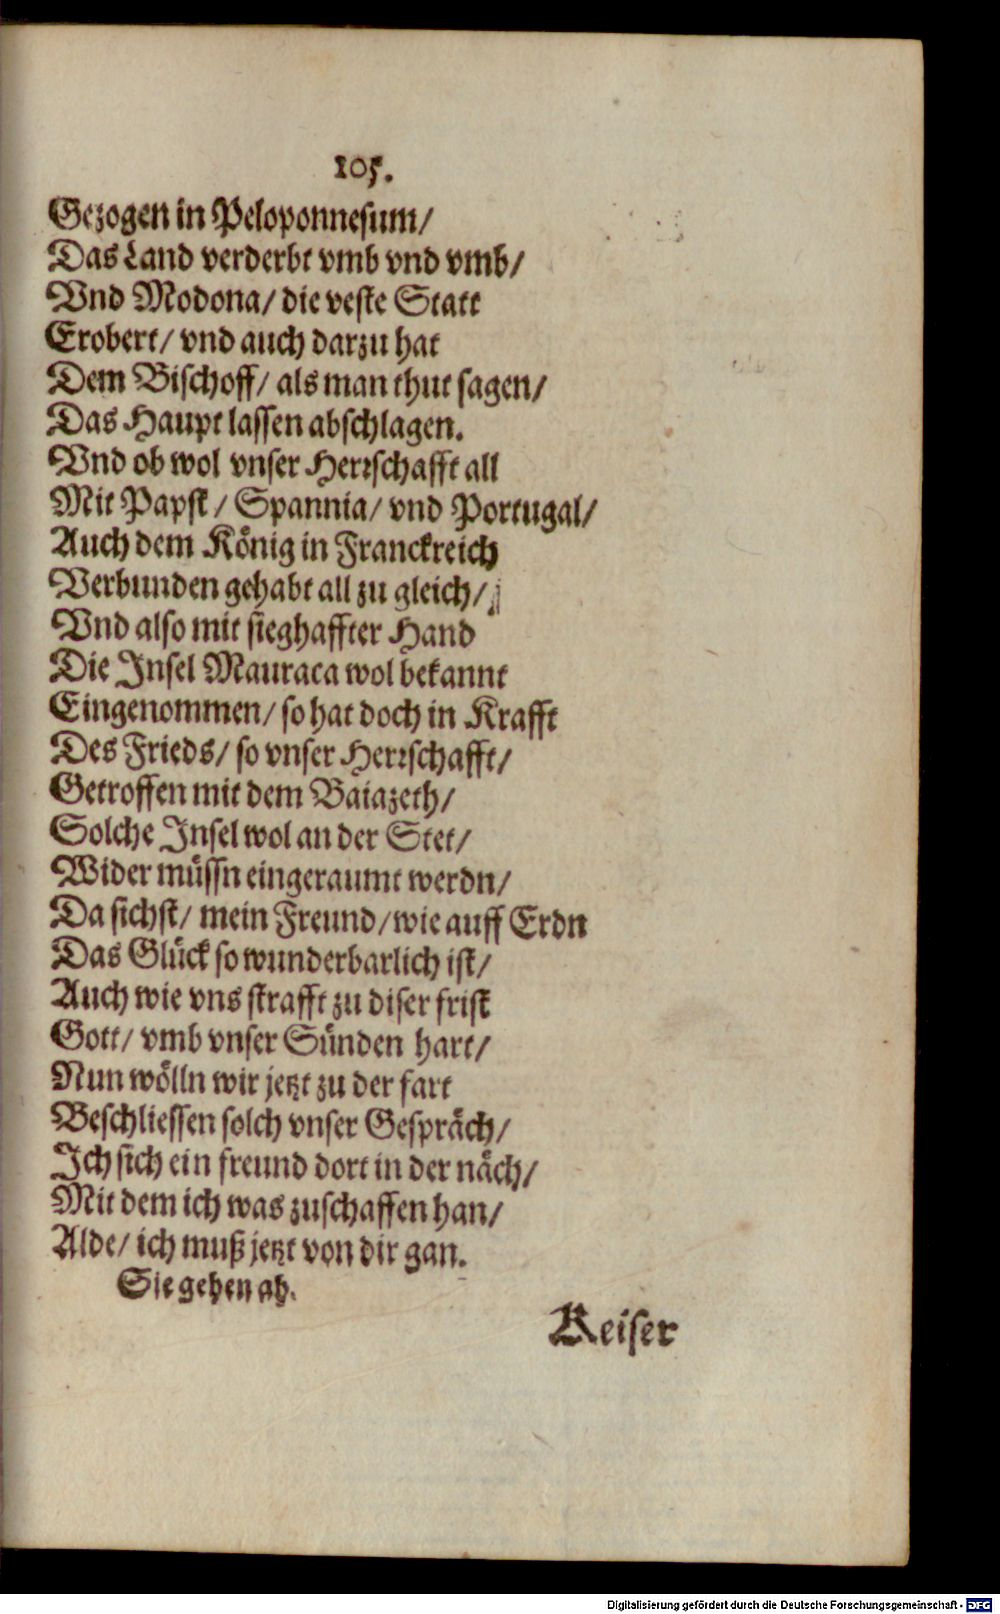 105.
Gezogen in Peloponnesum/
Das Land verderbt vmb vnd vmb/
Vnd Modona/ die veste Statt
Erobert/ vnd auch darzu hat
Dem Bischoff/ als man thut sagen/
Das Haupt lassen abschlagen.
Vnd ob wol vnser Herrschafft all
Mit Papst/ Spannia/ vnd Portugal/
Auch dem König in Franckreich
Verbunden gehabt all zu gleich/
Vnd also mit sieghaffter Hand
Die Insel Mauraca wol bekannt
Eingenommen/ so hat doch in Krafft
Des Frieds/ so vnser Herrschafft/
Getroffen mit dem Baiazeth/
Solche Insel wol an der Stet/
Wider müssn eingeraumt werdn/
Da sichst/ mein Freund/ wie auff Erdn
Das Glück so wunderbarlich ist/
Auch wie vns strafft zu diser frist
Gott/ vmb vnser Sünden hart/
Nun wölln wir jetzt zu der fart
Beschliessen solch vnser Gespräch/
Ich sich ein freund dort in der näch/
Mit dem ich was zuschaffen han/
Alde/ ich muß jetzt von dir gan.
Sie gehen ab.
Keiser
Digitalisierung gefördert durch die Deutsche Forschungsgemeinschaft - DFG